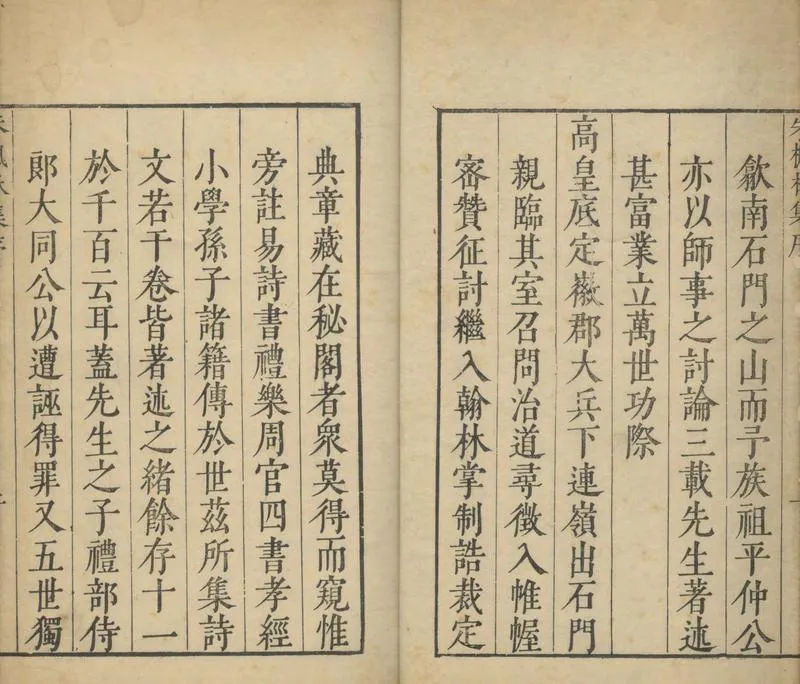 朱楓林集序
歙南石門之山而予族祖平仲公
亦以師事之討論三載先生著述
甚富業立萬世功際
高皇底定徽郡大兵下連嶺出石門
親臨其室召問治道尋徵入帷幄
密贊征討繼入翰林掌制誥裁定
典章藏在秘閣者衆莫得而窺惟
旁註易詩書禮樂周官四書孝經
小學孫子諸籍傳於世茲所集詩
文若干卷皆著述之緒餘存十一
於千百云耳蓋先生之子禮部侍
郎大同公以遭誣得罪又五世獨
朱楓林集序